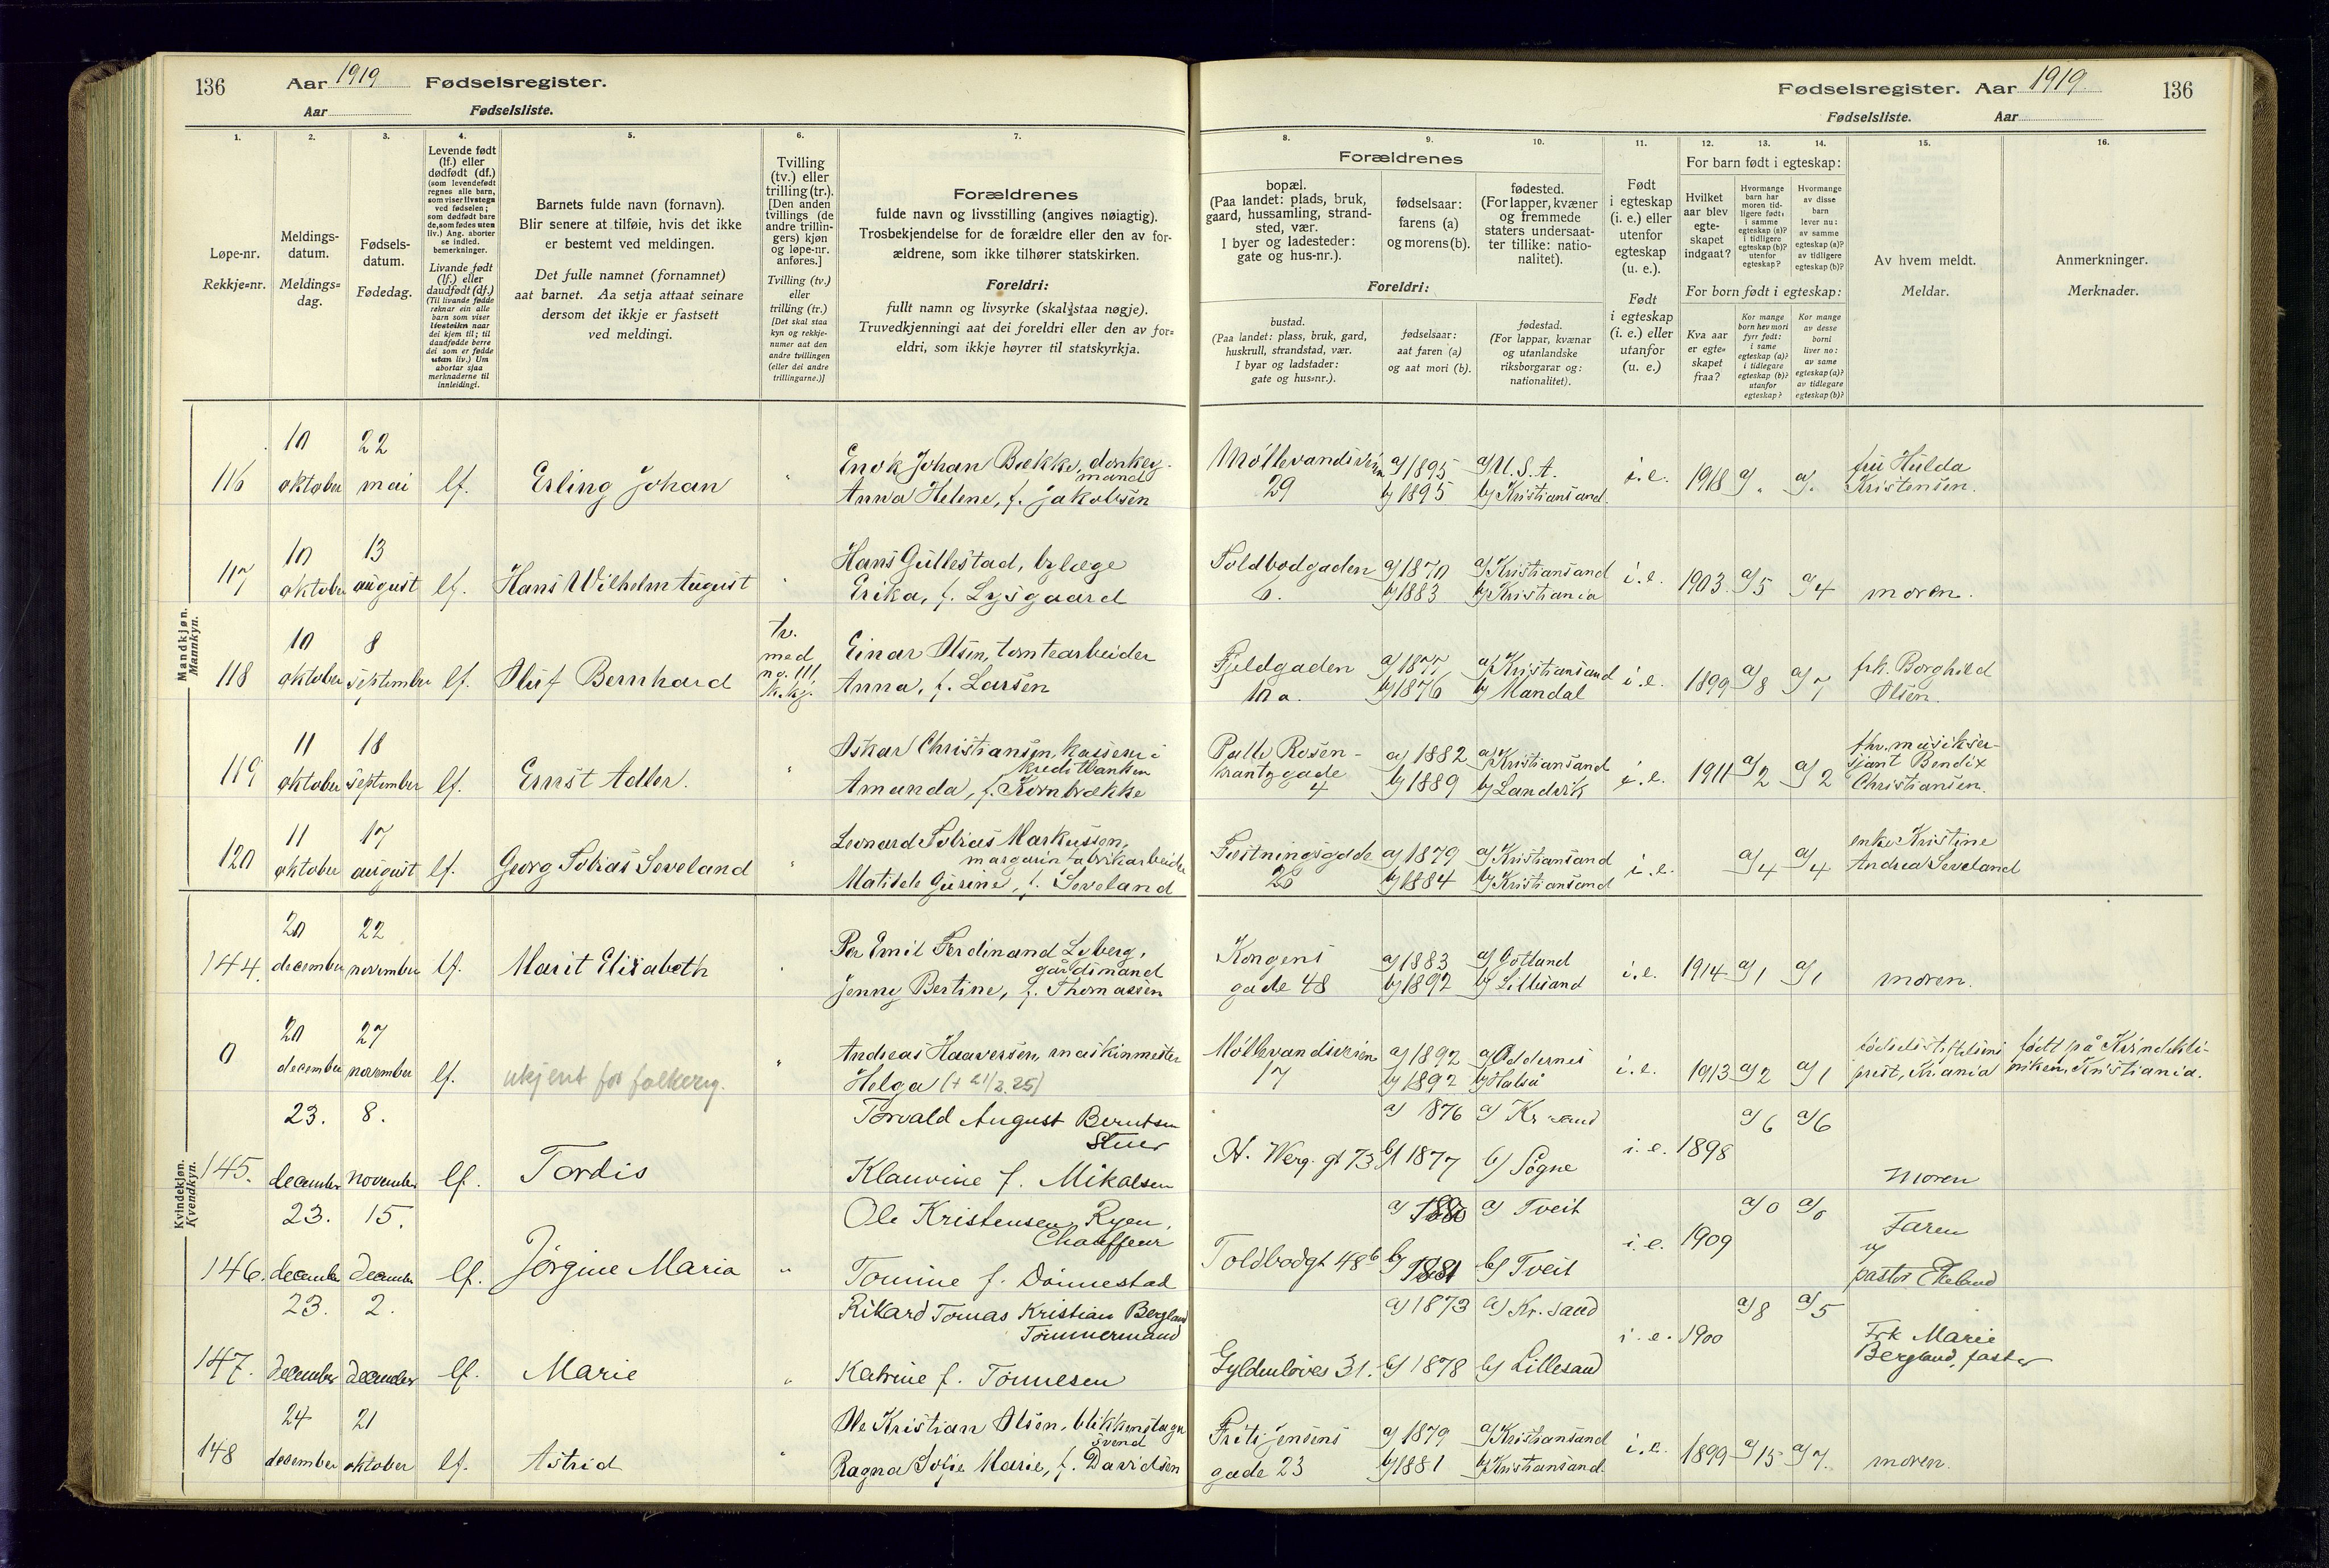 136
Aar 1919 Fødselsregister.
Aar Fødselsliste.
Fødselsregister. Aar 1919.
136
Fødselsliste. Aar
1.
Løpe-nr.
Rekkje=nr.
2.
Meldings-
datum.
Meldings=
dag.
3.
Fødsels-
datum.
Fødedag.
4.
Levende født
(lf.) eller
dødfødt (df.)
(som levendefødt
regnes alle barn,
som viser livstegn
ved fødselen;
som dødfødt bare
de, som fødes uten
liv.) Ang. aborter
se indled.
bemerkninger.
Livande født
(lf.) eller
daudfødt (df.)
(Til livande fødde
reknar ein alle
barn som viser
livsteikn naar
dei kjem til; til
daudfødde berre
dei som er fødde
utan liv.) Um
abortar sjaa
merknaderne til
innleidingi.
5.
Barnets fulde navn (fornavn).
Blir senere at tilføie, hvis det ikke
er bestemt ved meldingen.
Det fulle namnet (fornamnet)
aat barnet. Aa setja attaat seinare
dersom det ikkje er fastsett
ved meldingi.
6.
Tvilling
(tv.) eller
trilling (tr.).
[Den anden
tvillings (de
andre trillin-
gers) kjøn
og løpe-nr.
anføres.]
Tvilling (tv.)
eller
trilling (tr.)
[Det skal staa
kyn og rekkje-
numer aat den
andre tvillingen
(eller dei andre
trillingarne.)]
7.
Forældrenes
fulde navn og livsstilling (angives nøiagtig).
Trosbekjendelse for de forældre eller den av for-
ældrene, som ikke tilhører statskirken.
Foreldri:
fullt namn og livsyrke (skal staa nøgje).
Truvedkjenningi aat dei foreldri eller den av for=
eldri, som ikkje høyrer til statskyrkja.
8.
Forældrenes
bopæl.
(Paa landet: plads, bruk,
gaard, hussamling, strand-
sted, vær.
I byer og ladesteder:
gate og hus-nr.).
Foreldri:
bustad.
(Paa landet: plass, bruk, gard,
huskrull, strandstad, vær.
I byar og ladstader:
gate og hus=nr.).
9.
fødselsaar:
farens (a)
og morens (b).
fødselsaar:
aat faren (a)
og aat mori (b).
10.
fødested.
(For lapper, kvæner
og fremmede
staters undersaat-
ter tillike: natio-
nalitet).
fødestad.
(For lappar, kvænar
og utanlandske
riksborgarar og:
nationalitet).
11.
Født
i egteskap
(i. e.) eller
utenfor
egteskap
(u. e.).
Født
i egteskap
(i. e.) eller
utanfor
(u. e.)
For barn født i egteskap:
12.
Hvilket
aar blev
egte-
skapet
indgaat?
For born født i egteskap:
Kva aar
er egte=
skapet
fraa?
13.
Hvormange
barn har
moren tid-
ligere født:
i samme
egteskap (a)?
i tidligere
egteskap (b)?
utenfor
egteskap?
Kor mange
born hev mori
fyrr født:
i same
egteskap (a)?
i tidlegare
egteskap (b)?
utanfor
egteskap?
14.
Hvormange
av disse
barn
lever nu:
av samme
egteskap (a)?
av tidligere
egteskap (b)?
Kor mange
av desse
borni
liver no:
av same
egteskap (a)?
av tidlegare
egteskap (b)?
15.
Av hvem meldt.
Meldar.
16.
Anmerkninger.
Merknader.
Mandkjøn.
Mannkyn.
116 10 oktober 22 mai lf. Erling Johan " Enok Johan Bække, donkey-
mand
Anna Helene, f. Jakobsen
Møllevandsveien 29 a) 1895 b) 1895 a) U.S.A. b) Kristiansand. i.e. 1918 a) . a) . fru Hulda
Kristensen.
117 10 oktober 13 august lf. Hans Wilhelm August " Hans Gullestad, bylæge
Erika, f. Lysgaard
Toldbodgaden 6. a) 1870 b) 1883 a) Kristiansand b) Kristiania i.e. 1903. a) 5 a) 4 moren.
118 10 oktober 8 september lf. Oluf Bernhard tv.
med
no. 111,
k.kj.
Einar Olsen, tomtearbeider
Anna, f. Larsen
Fjeldgaden 10 a. a) 1877. b) 1876 a) Kristiansand b) Mandal i.e. 1899 a) 8 a) 7 frk. Borghild
Olsen.
119 11 oktober 18 september lf. Ernst Adler. " Oskar Christiansen, kasserer i
Kreditbanken
Amanda, f. Kornbrække
Palle Rosen-
krantzgade
4 a) 1882 b) 1889 a) Kristiansand b) Landvik i.e. 1911 a) 2 a) 2 fhv. musikser-
sjant Bendix
Christiansen.
120 11 oktober 17 august lf. Georg Tobias Seveland " Leonard Tobias Markussen,
margarinfabrikarbeider
Matilde Gurine, f. Seveland
Fæstningsgade
26 a) 1879 b) 1884 a) Kristiansand b) Kristiansand i.e. a) 4 a) 4 enke Kristine
Andrea Seveland
Kvindekjøn.
Kvendkyn.
144. 20 december 22 november lf. Marit Elisabeth " Per Emil Ferdinand Lyberg,
gårdsmand
Jenny Bertine, f. Thomassen
Kongens
gade 48 a) 1883 b) 1892 a) Gotland b) Lillesand i.e. 1914 a) 1 a) 1 moren.
0 20 december 27 november lf. ukjent for folkereg. " Andreas Haaversen, maskinmester
Helga (+ 21/2 25)
Møllevandsveien
17 a) 1892 b) 1892 a) Oddernes b) Halså i.e. 1913 a) 2 a) 1 fødselsstiftelsens
prest, Kr.ania født på Kvindekli-
niken, Kristiania.
145. 23. december 8. november lf. Tordis Torvald August Berntsen
Stuer
Klauvine f. Mikalsen
H. Werg. gt 73 a) 1876 b) 1877 a) Kr sand b) Søgne i.e. 1898 a) 6 a) 6 Moren
146. 23. december 15. december lf. Jørgine Maria " Ole Kristensen Ryen,
Chauffeur
Tomine f. Dønnestad
Toldbodgt 48 b a) 1880 b) 1881 a) Tveit b) Tveit i.e. 1909 a) 0 a) 0 Faren
v/
pastor Ekeland
147. 23. december 2. december lf. Marie " Rikard Tomas Kristian Bergland
Tømmermand
Katrine f. Tønnesen
Gyldenløves 31. a) 1873 b) 1878 a) Kr. sand b) Lillesand i.e. 1900 a) 8 a) 5 Frk Marie
Bergland, faster
148 24 desember 21 oktober lf. Astrid " Ole Kristian Olsen, blikkenslager
svend
Ragna Sofie Marie, f. Davidsen
Frits Jensens
gade 23 a) 1879 b) 1881 a) Kristiansand b) Kristiansand. i.e. 1899 a) 15 a) 7 moren.